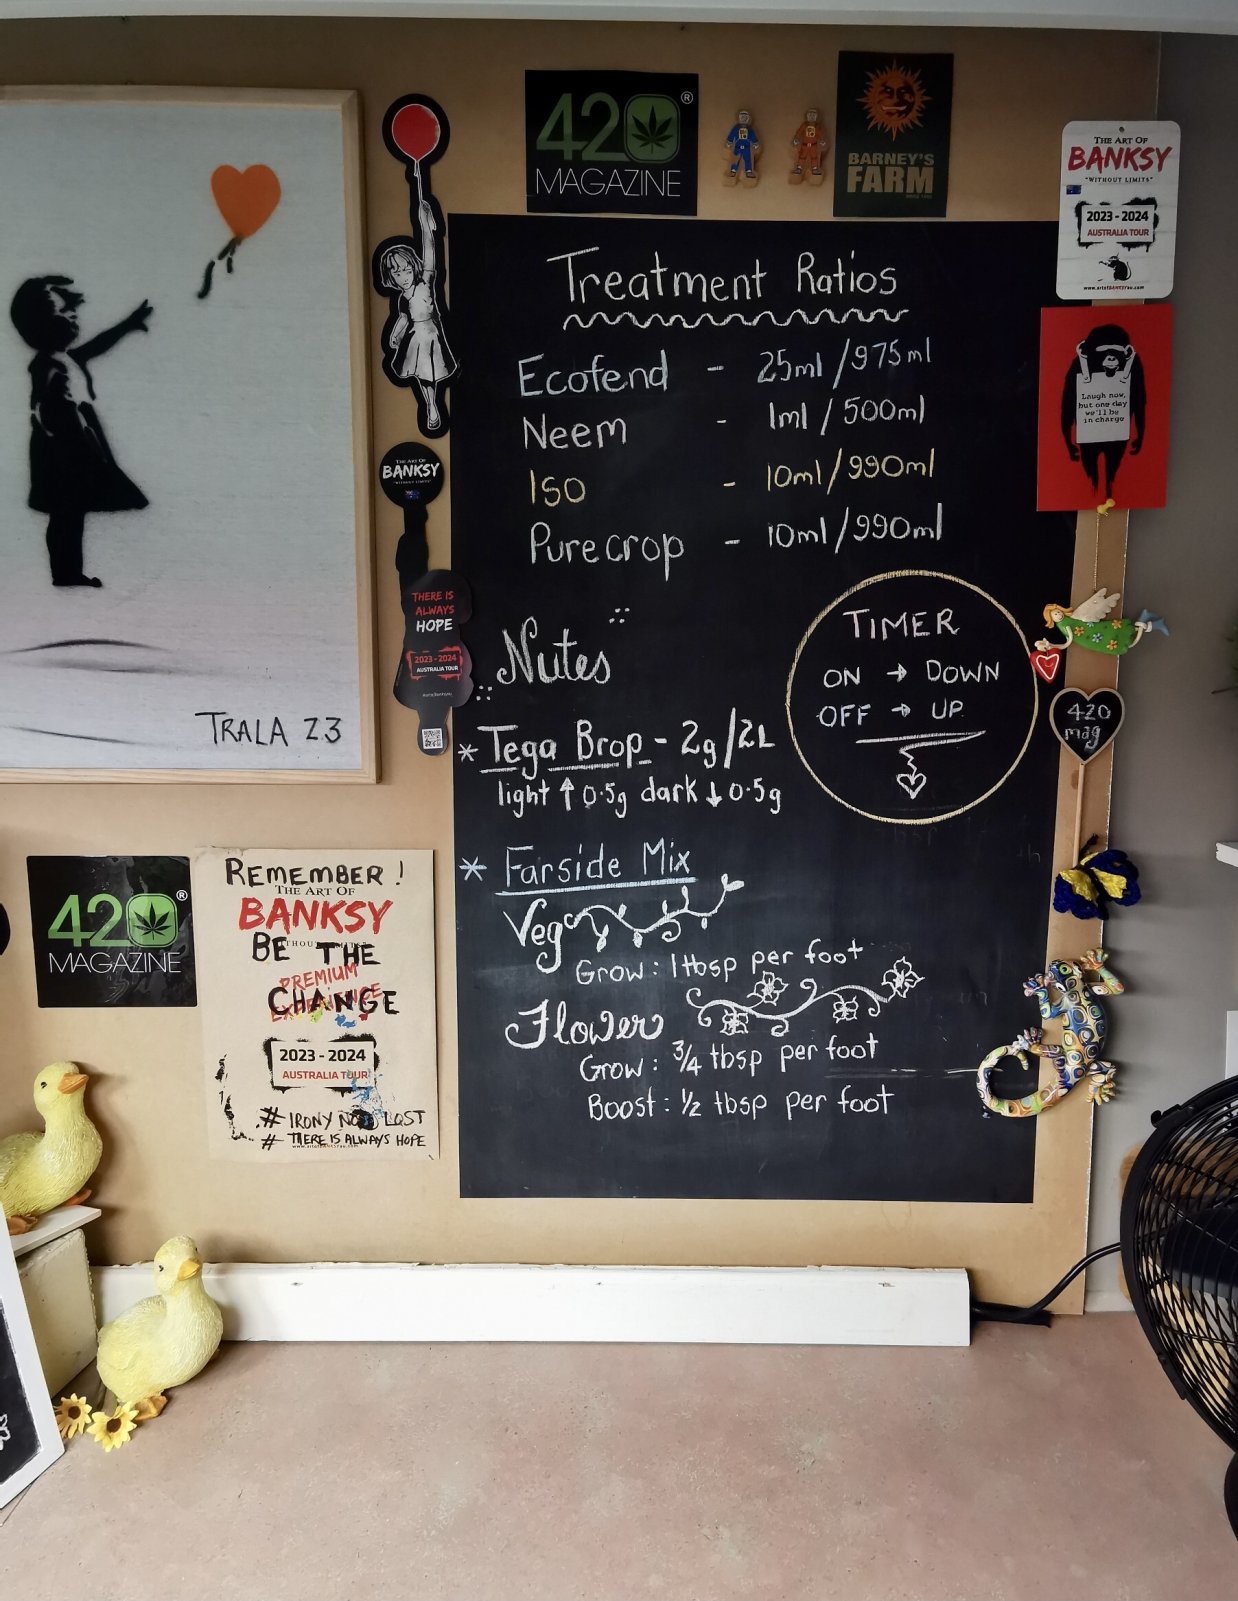 420®
MAGAZINE
BARNEY'S
FARM
THE ART OF
BANKSY
"WITHOUT LIMITS"
2023 - 2024
AUSTRALIA TOUR
Laugh now,
but one day
we'll be
in charge
THE ART OF
BANKSY
"WITHOUT LIMITS"
THERE IS
ALWAYS
HOPE
2023 - 2024
AUSTRALIA TOUR
TRALA 23
Treatment Ratios
Ecofend - 25ml/975ml
Neem - 1ml/500ml
Iso - 10ml/990ml
Purecrop - 10ml/990ml
TIMER
ON → DOWN
OFF → UP
Nutes
* Tega Brop - 2g/2L
light ↑ 0.5g dark ↓ 0.5g
* Farside Mix
Veg
Grow: 1 tbsp per foot
Flower
Grow: 3/4 tbsp per foot
Boost: 1/2 tbsp per foot
420
mag
420®
MAGAZINE
REMEMBER!
THE ART OF
BANKSY
BE THE
PREMIUM
CHANGE
2023 - 2024
AUSTRALIA TOUR
# IRONY NOT LOST
# THERE IS ALWAYS HOPE